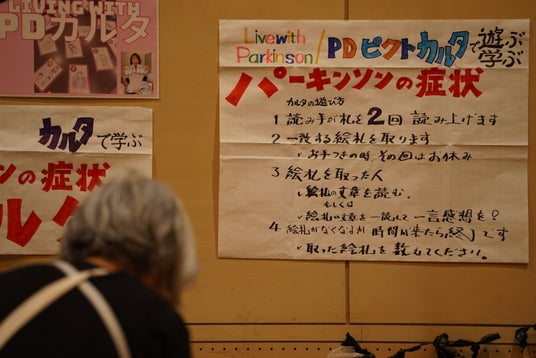 LIVING WITH
PDカルタ
カルタで学ぶ
ンソンの症状
Live with
Parkinson / PDピクトカルタで遊ぶ学ぶ
パーキンソンの症状
カルタの遊び方
1 読み手が札を2回 読み上げます
2 一致する絵札を取ります
✓お手つきの時、その回はお休み
3 絵札を取った人
✓絵札の文章を読む.
もしくは
✓絵札の文章を一読して一言感想を?
4 絵札がなくなるか 時間が来たら終了です
✓取った絵札を数えてください。